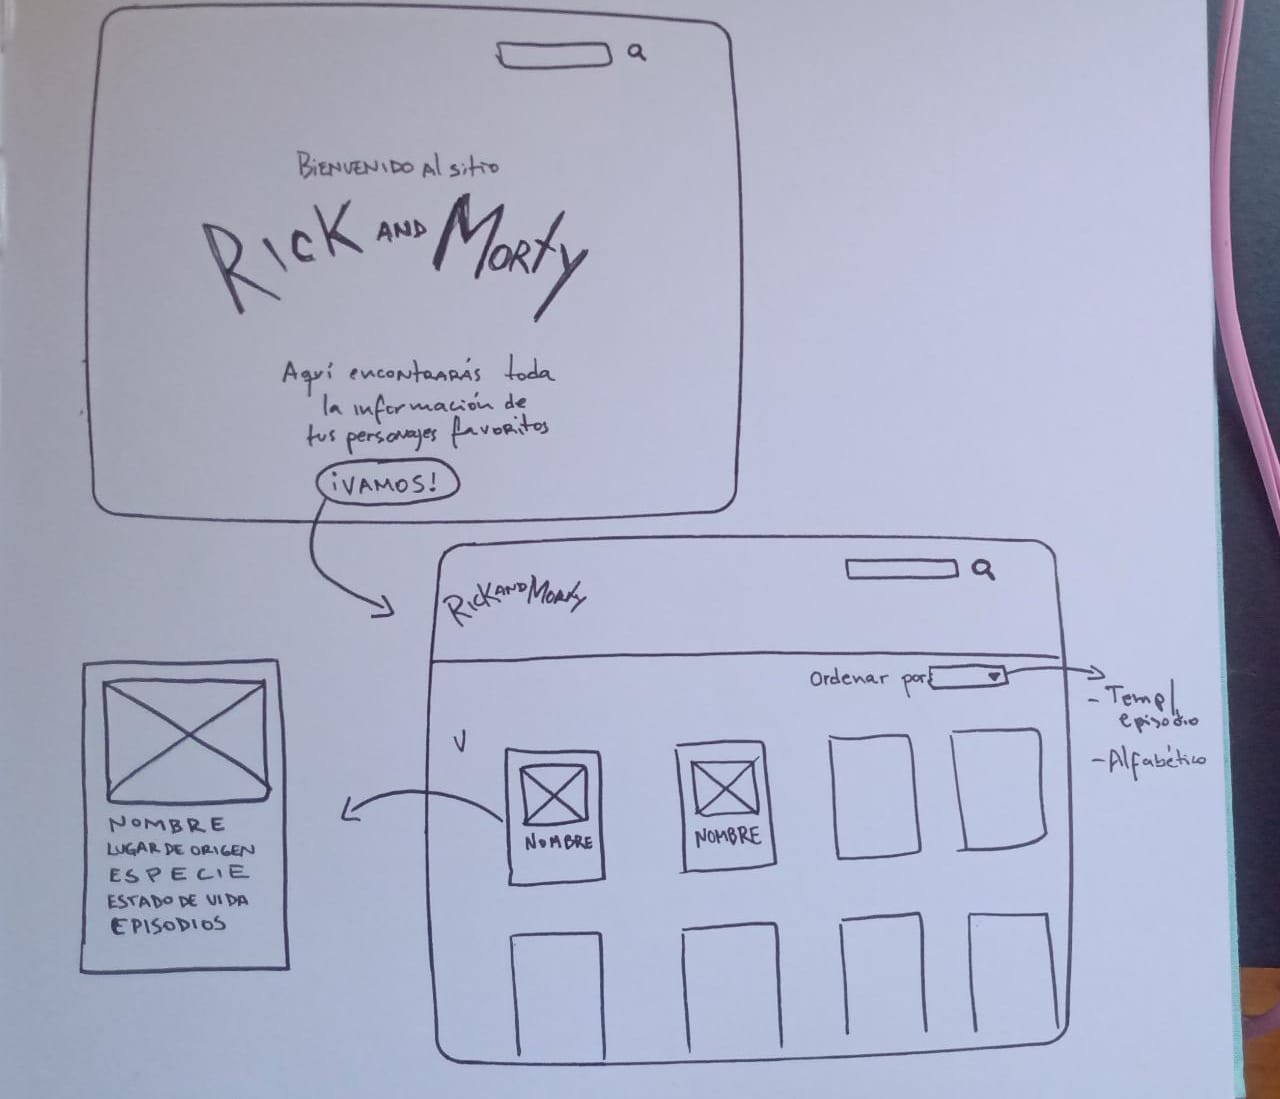 BIENVENIDO Al sitio
RICK AND MORTY
Aquí ENCONTRARÁS toda
la información de
tus personajes favoritos
¡VAMOS!
RICK AND MORTY
Ordenar por
- Temp/
episodio
- Alfabético
NOMBRE
NOMBRE
NOMBRE
LUGAR DE ORIGEN
ESPECIE
ESTADO DE VIDA
EPISODIOS